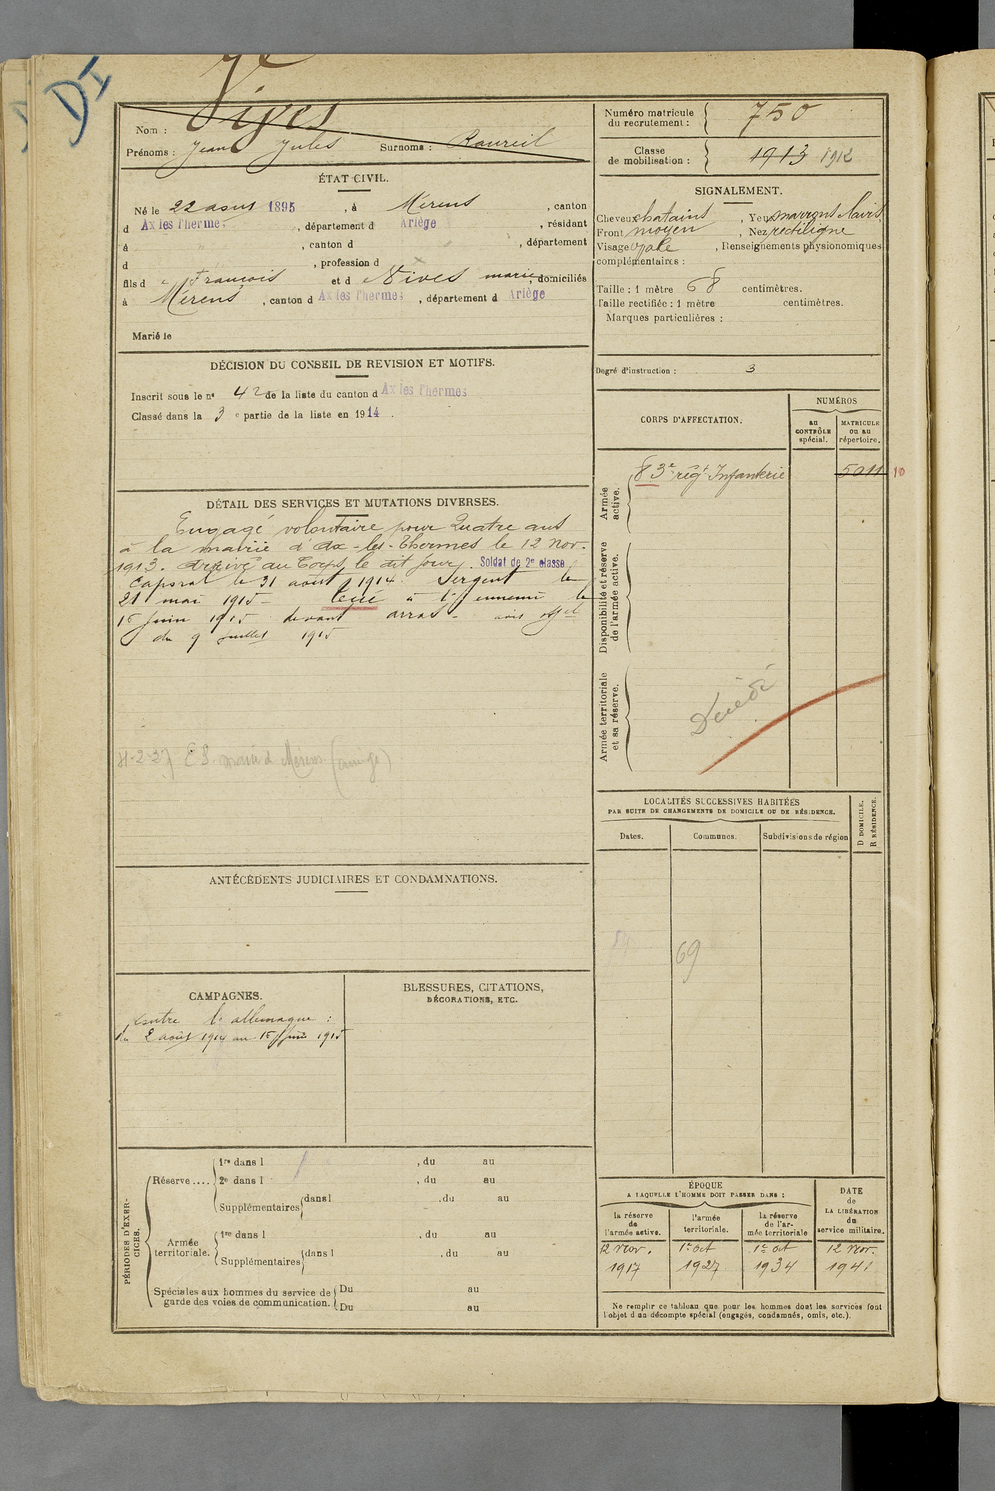 DI
Nom : Vives
Prénoms : Jean Jules Surnoms : Raureil
ÉTAT CIVIL.
Né le 22 aout 1895, à Mérens, canton
d Ax les Thermes, département d Ariège, résidant
à " , canton d , département
d , profession d
fils d François et d Nives marie, domiciliés
à Mérens, canton d Ax les Thermes, département d Ariège
Marié le
DÉCISION DU CONSEIL DE REVISION ET MOTIFS.
Inscrit sous le n° 42 de la liste du canton d Ax les Thermes
Classé dans la 3e partie de la liste en 1914.
DÉTAIL DES SERVICES ET MUTATIONS DIVERSES.
Engagé volontaire pour Quatre ans
à la mairie d'Ax-les-Thermes le 12 Nov.
1913. Arrivé au Corps le dit jour. Soldat de 2e classe
Caporal le 31 août 1914. Sergent le
21 mai 1915 - tué à l'ennemi le
15 juin 1915 devant arras - avis off el
du 9 juillet 1915
mairie de Mérens
ANTÉCÉDENTS JUDICIAIRES ET CONDAMNATIONS.
CAMPAGNES.
Contre l'allemagne :
du 2 août 1914 au 15 juin 1915
BLESSURES, CITATIONS,
DÉCORATIONS, ETC.
PÉRIODES D'EXERCICES.
Réserve ....
1re dans l , du au
2e dans l , du au
Supplémentaires dans l , du au
Armée territoriale.
1re dans l , du au
Supplémentaires dans l , du au
Spéciales aux hommes du service de garde des voies de communication.
Du au
Du au
Numéro matricule du recrutement : 750
Classe de mobilisation : 1913 1912
SIGNALEMENT.
Cheveux chatains, Yeux marrons clairs
Front moyen, Nez rectiligne
Visage ovale, Renseignements physionomiques
complémentaires :
Taille : 1 mètre 68 centimètres.
Taille rectifiée : 1 mètre centimètres.
Marques particulières :
Degré d'instruction : 3
CORPS D'AFFECTATION.
NUMÉROS
AU CONTRÔLE spécial.
MATRICULE ou au répertoire.
Armée active.
83e régt Infanterie 5011 10
Disponibilité et réserve de l'armée active.
Armée territoriale et sa réserve.
Décédé
LOCALITÉS SUCCESSIVES HABITÉES
PAR SUITE DE CHANGEMENTS DE DOMICILE OU DE RÉSIDENCE.
Dates. Communes. Subdivisions de région
D DOMICILE.
R RÉSIDENCE.
69
ÉPOQUE
A LAQUELLE L'HOMME DOIT PASSER DANS :
la réserve de l'armée active.
l'armée territoriale.
la réserve de l'armée territoriale
DATE de LA LIBÉRATION du service militaire.
12 Nov. 1er oct 1er oct 12 Nov.
1917 1927 1934 1941
Ne remplir ce tableau que pour les hommes dont les services font
l'objet d'un décompte spécial (engagés, condamnés, omis, etc.).